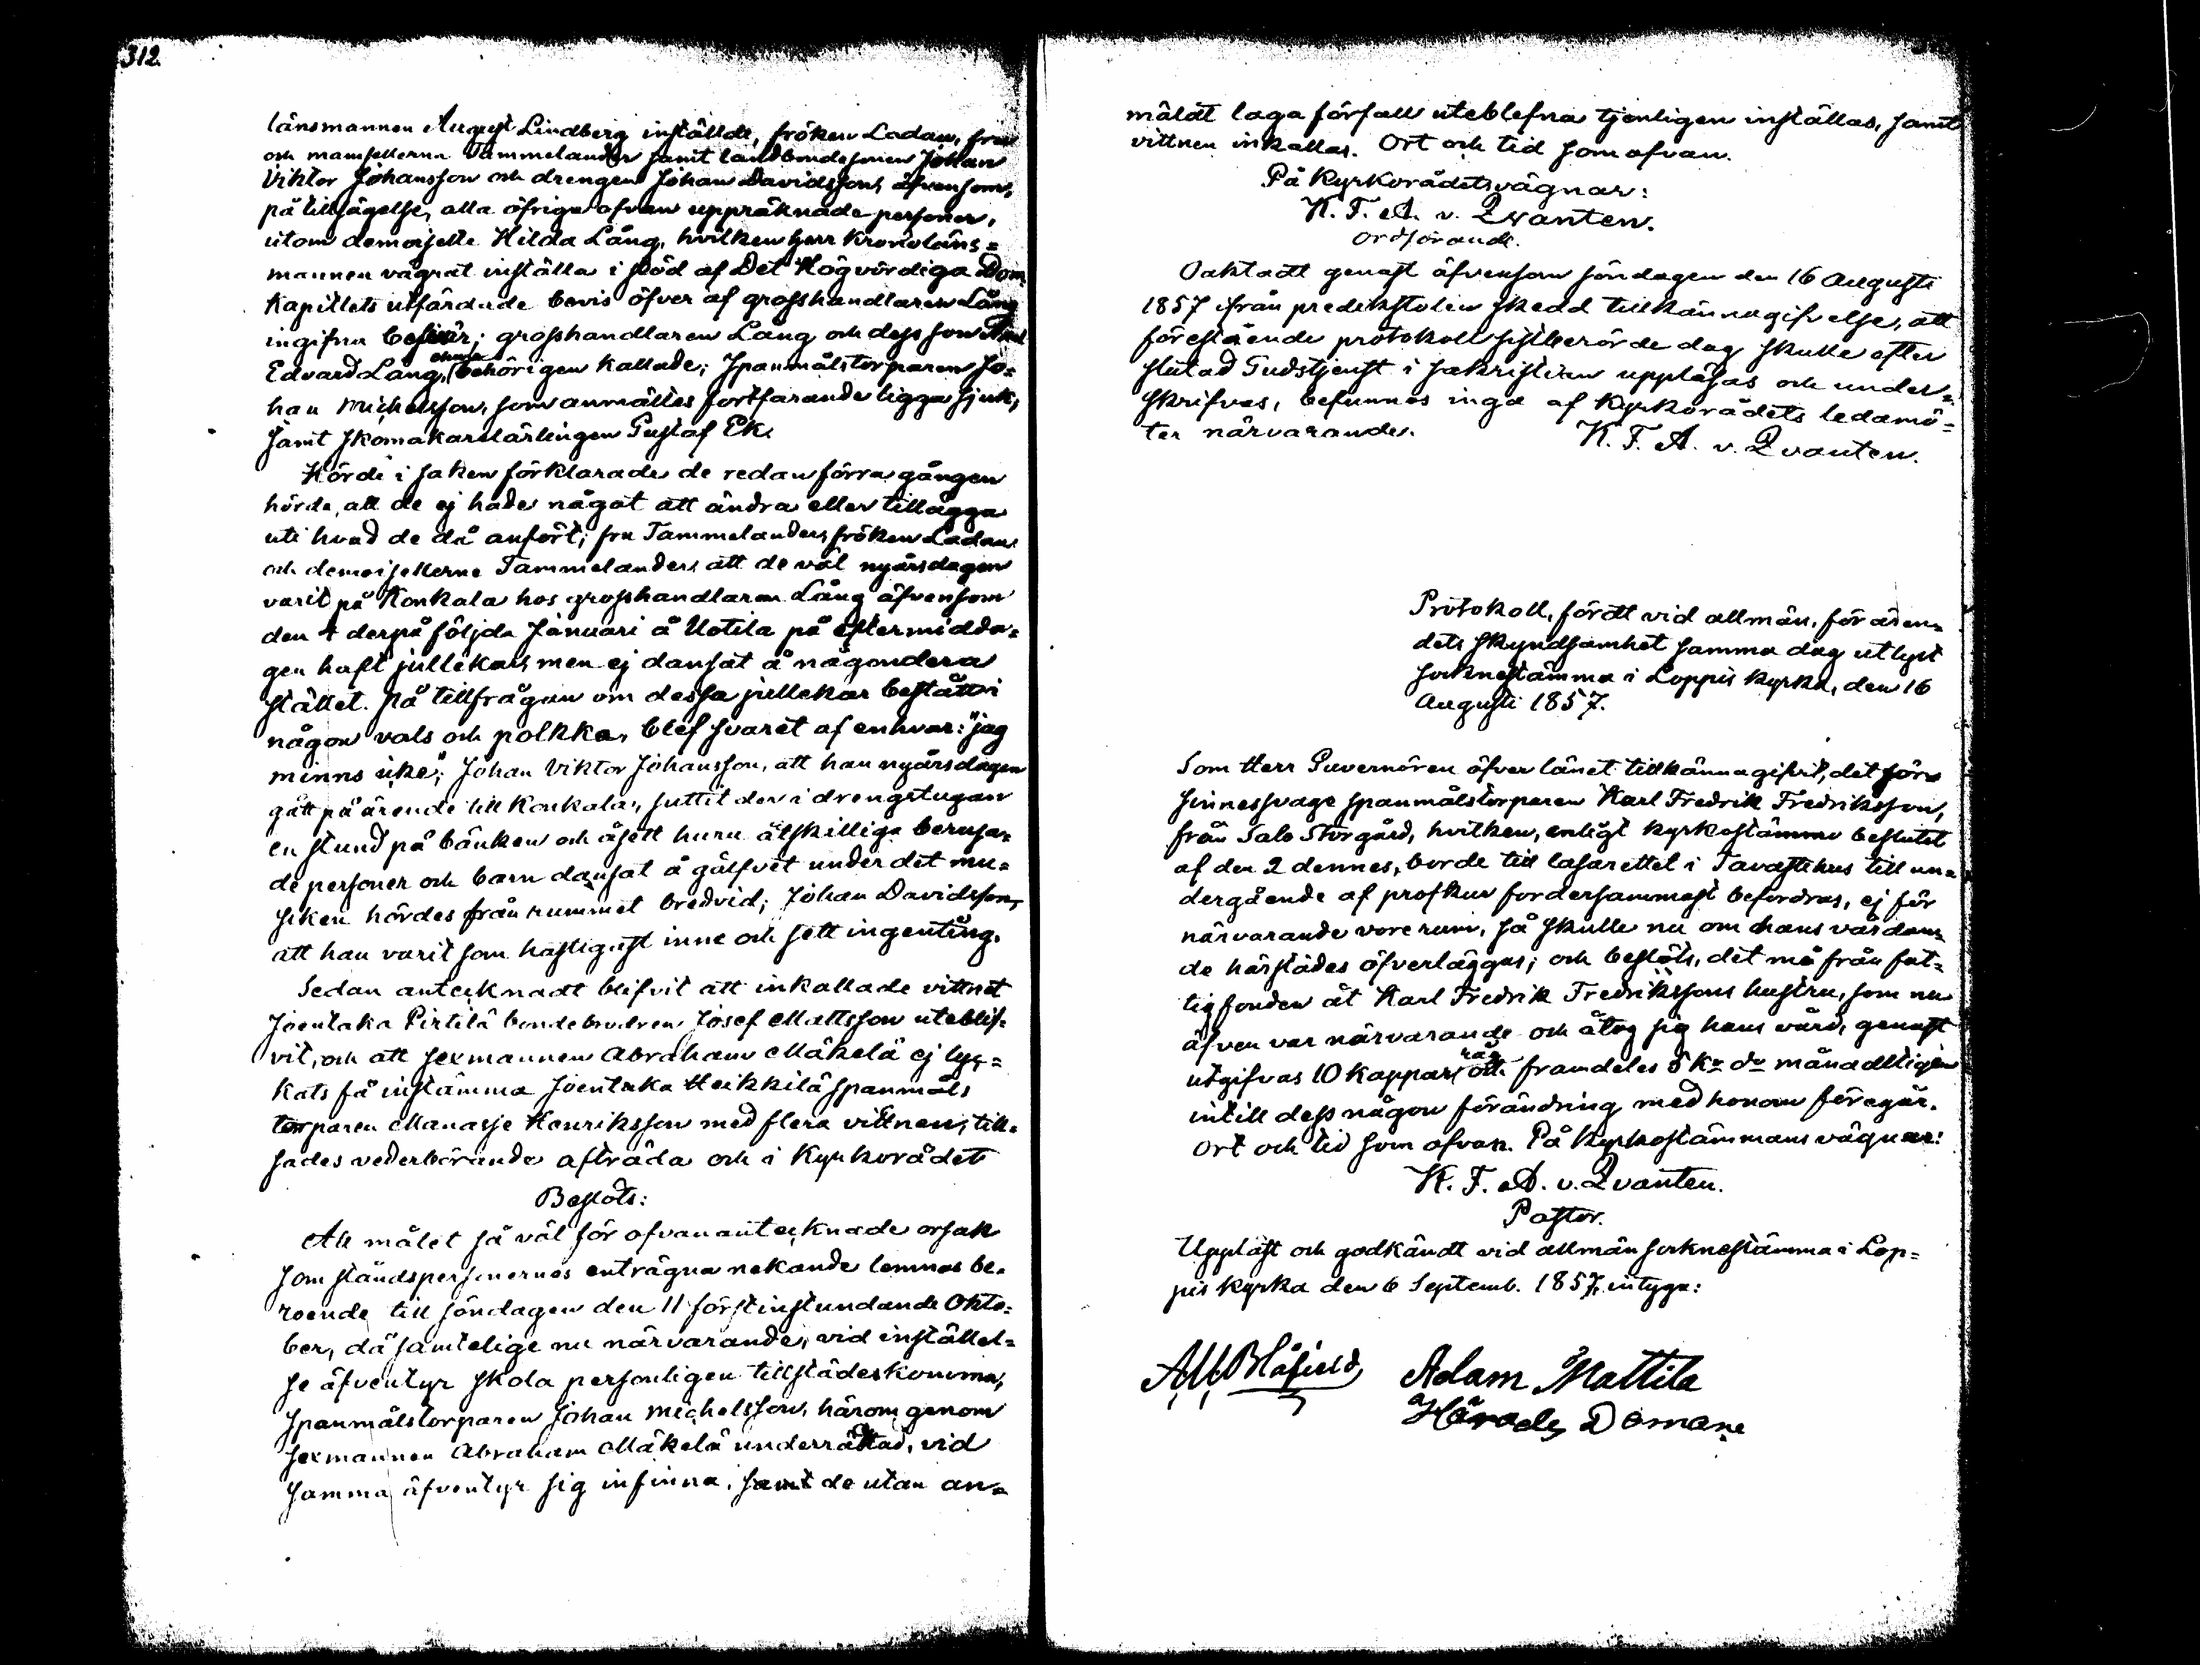 312
länsmannen August Lindberg inställde, fröken Ladau, fru
och mamsellerna Tammelander samt landbondesonen Johan
Viktor Johansson och drengen Johan Davidsson, äfvensom,
på tillsägelse, alla öfriga ofvan uppräknade personer,
utom demoiselle Hilda Lång, hvilken herr Kronoläns=
mannen vägrat inställa i stöd af Det Högvördiga Dom
Kapitlets utfärdade bevis öfver af grosshandlaren Lång
ingifna besvär; grosshandlaren Lång och dess son
Edvard Lång, ehuru behörigen kallade; Spanmålstorparen Jo=
han Michelsson, som anmältes fortfarande ligga sjuk,
samt skomakarelärlingen Gustaf Ek.
Hörde i saken förklarade de redan förra gången
hörda, att de ej hade något att ändra eller tillägga
uti hvad de då anfört; fru Tammelander, fröken Ladau
och demoisellerne Tammelander, att de väl nyårsdagen
varit på Konkala hos grosshandlaren Lång äfvensom
den 4 derpå följde Januari å Uotila på eftermidda=
gen haft jullekar, men ej dansat å någondera
stället. På tillfrågan om dessa jullekar bestått i
någon vals och polkka, blef svaret af enhvar: "jag
minns icke"; Johan Viktor Johansson, att han nyårsdagen
gått på ärende till Konkala, suttit der i drengstugan
en stund på bänken och åsett huru åtskilliga berusa=
de personer och barn dansat å gålfvet under det mu=
siken hördes från rummet bredvid; Johan Davidsson,
att han varit som hastigast inne och sett ingenting.
Sedan antecknadt blifvit att inkallade vittnet
Joentaka Pirtilä bondebrodren Josef Mattsson uteblif=
vit, och att sexmannen Abraham Mäkelä ej lyc=
kats få instämma Joentaka Heikkilä spanmåls
torparen Manasse Henriksson med flera vittnen, till=
sades vederbörande afträda och i Kyrkorådet
Beslöts:
Att målet så väl för ofvanantecknade orsak
som ståndspersonernes enträgna nekande lemnas be=
roende till söndagen den 11 förstinstundande Okto=
ber, då samtelige nu närvarande, vid inställel=
se äfventyr skola personligen tillstädeskomma,
spanmålstorparen Johan Michelsson, härom genom
sexmannen Abraham Mäkelä underrättad, vid
samma äfventyr sig infinna, samt de utan an=
mäldt laga förfall uteblefna tjenligen inställas, samt
vittnen inkallas. Ort och tid som ofvan.
På Kyrkorådets vägnar:
K. F. A. v. Qvanten.
Ordförande.
Oaktadt genast äfvensom söndagen den 16 Augusti
1857 ifrån predikstolen skedd tillkännagifvelse, att
förestående protokoll sistberörde dag skulle efter
slutad Gudstjenst i sakristian uppläsas och under=
skrifvas, befunnos inga af Kyrkorådets ledamö=
ter närvarande.
K. F. A. v. Qvanten.
Protokoll, fördt vid allmän, för ären=
dets skyndsamhet samma dag utlyst
sockenstämma i Loppis kyrka, den 16
Augusti 1857.
Som Herr Guvernören öfver länet tillkännagifvit, det för
sinnessvage spanmålstorparen Karl Fredrik Fredriksson,
från Salo Storgård, hvilken, enligt kyrkostämmo beslutet
af den 2 dennes, borde till lasarettet i Tavastehus till un=
dergående af profkur fordersammast befordras, ej för
närvarande vore rum, så skulle nu om hans vårdan=
de härstädes öfverläggas; och beslöts, det må från fat=
tigfonden åt Karl Fredrik Fredrikssons hustru, som nu
äfven var närvarande och åtog sig hans vård, genast
utgifvas 10 kappar råg och framdeles 5 kr do månadtligen
intill dess någon förändring med honom föregår.
Ort och tid som ofvan. På Kyrkostämmans vägnar:
K. F. A. v. Qvanten.
Pastor.
Uppläst och godkändt vid allmän socknestämma i Lop=
pis kyrka den 6 Septemb. 1857, intyga:
Adam Mattila
Härads Domare